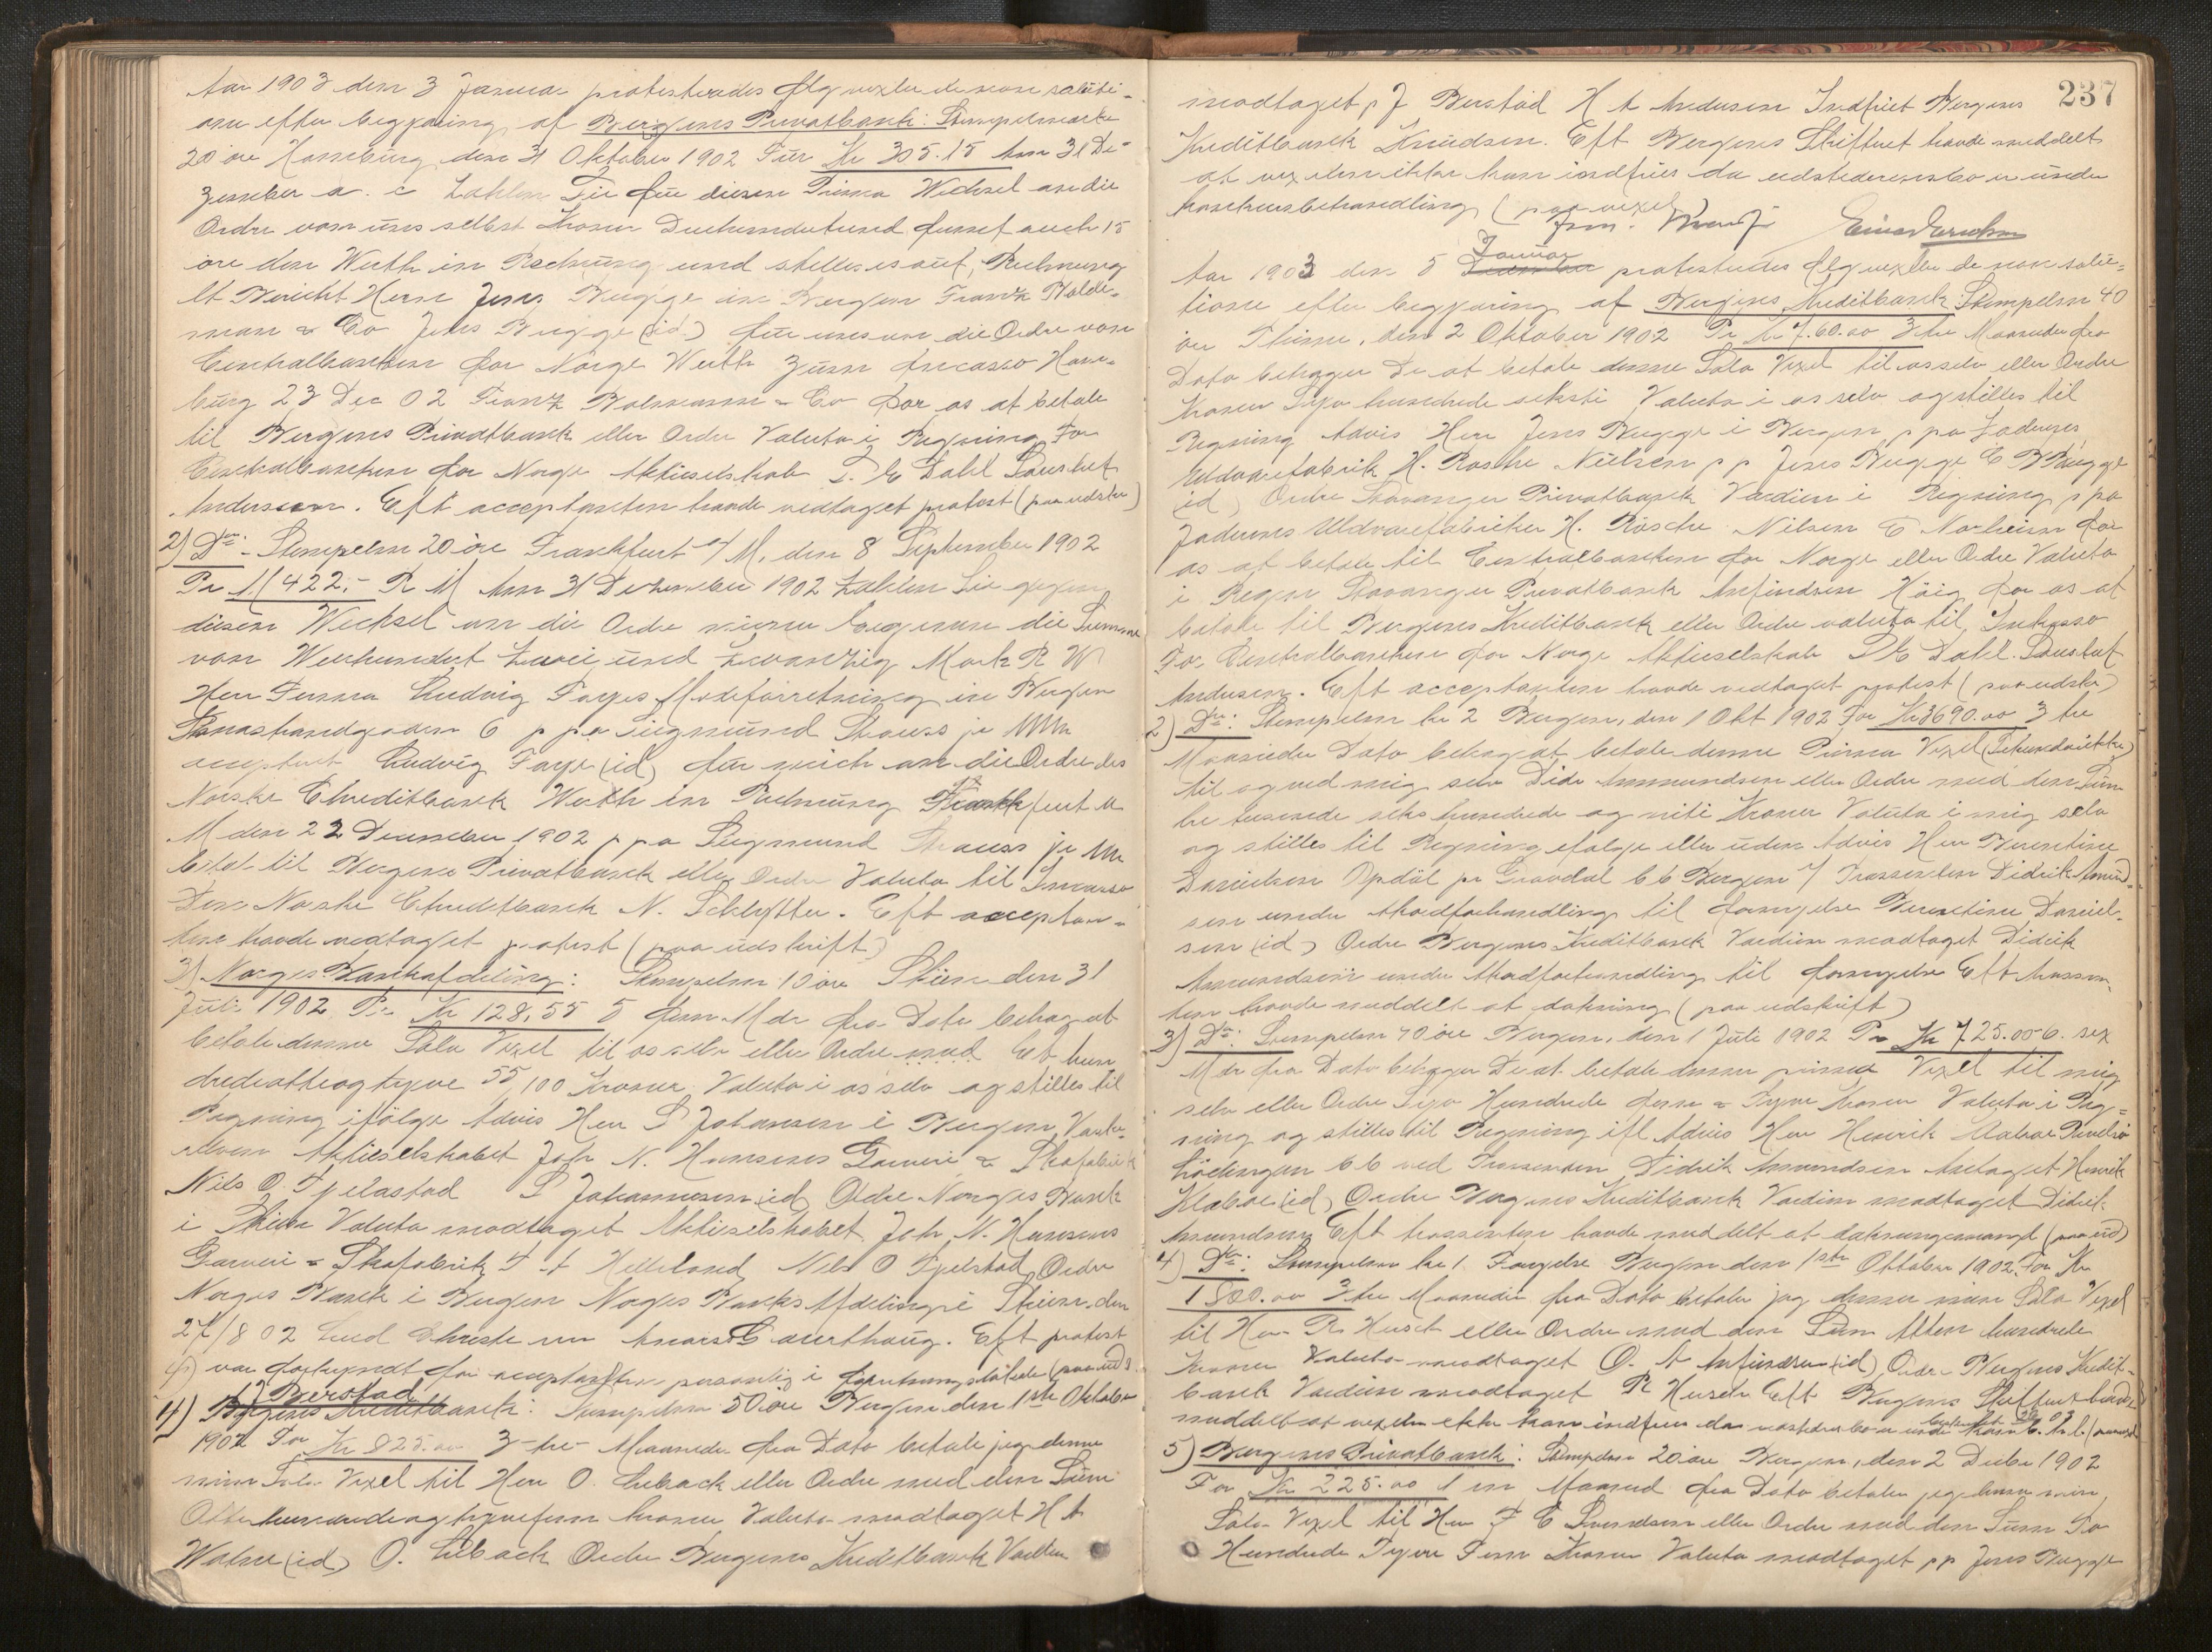 Aar 1903 den 3 Januar protesterades flg vexler de non soluti-
one efter begjæring af Bergens Privatbank: Stempelmærke
20 øre Hamburg den 31 Oktober 1902 Für Kr 305.15 Am 31 De-
zember a. c zahlen Sie für diesen Prima Wechsel an die
Ordre von uns selbst Kronen Dreihundertund fuenf auch 15
øre den Werth in Rechnung und stellen es auf Rechnung
lt Bericht Herrn Jens Brügge in Bergen Franz
& Co Jens Brügge (id) für uns an die Ordre von
Centralbanken for Norge Werth zum Incasso Ham-
burg 23 Dec 02 Franz & Co For os at betale
til Bergens Privatbank eller Ordre Valuta i Regning For
Centralbanken for Norge Aktieselskab Dahl
Andersen. Eft acceptanten havde vedtaget protest (paa udskr)
2) Do: Stempelm 20 øre Frankfurt a/M, den 8 September 1902
Pr M 422.- R M Am 31 Dezember 1902 zahlen Sie gegen
diesen Wechsel an die Ordre die Summe
von Vierhundert zwei und zwanzig Mark R W
Herr Firma Ludvig Fayes Modeforretning in Bergen
Strandgaden 6 p pa Siegmund Strauss jr
acceptirt Ludvig Faye (id) für mich an die Ordre der
Norske Creditbank Werth in Rechnung Frankfurt a
M den 22 Dezember 1902 p pa Siegmund Strauss jr
betal til Bergens Privatbank eller Ordre Valuta til Incasso
Den Norske Creditbank N. Schlytter. Eft acceptan-
ten havde vedtaget protest (paa udskrift)
3) Norges Bankafdeling: Stempelm 10 øre Skien den 31
Juli 1902 Pr Kr 128,55 5 fem Mdr fra Dato behag at
betale denne Sola Vexel til os selv eller Ordre med Et hun
drede otteogtyve 55/100 Kroner Valuta i os selv og stilles til
Regning ifølge Advis Herr S Johansen i Bergen
Aktieselskabet Joh N. Hansens Garveri & Skofabrik
Nils O. Fjelstad S Johannesen (id) Ordre Norges Bank
i Skien Valuta modtaget Aktieselskabet Joh. N. Hansens
Garveri & Skofabrik Helleland Nils O Fjelstad Ordre
Norges Bank i Bergen Norges Banks Afdeling i Skien den
27/8 02 Eft protest
var forkyndt for acceptanten personlig i forretningslokale (paa uds
1) Berstad
4) Bergens Kreditbank: Stempelm 50 øre Bergen den 1ste Oktober
1902 For Kr 825.00 3 tre Maaneder fra Dato betaler jeg denne
min Sola Vexel til Herr O. eller Ordre med den Sum
Otte hundrede og tyvefem kroner Valuta modtaget H A
Watne (id) O. Ordre Bergens Kreditbank Værdien
237
modtaget p J Berstad H A Andersen Indfriet Bergens
Kreditbank Knudsen. Eft Bergens Skifteret havde meddelt
at vexelen ikke kan indfries da udstederens bo er under
konkursbehandling (paa vexel)
Aar 1903 den 5 Januar protesterades flg vexler de non solu-
tione efter begjæring af Bergens Kreditbank: Stempelm 40
øre Thime, den 2 Oktober 1902 Pr Kr 760.00 3 tre Maaneder fra
Dato behager De at betale denne Sola Vexel til os selv eller Ordre
Kroner Syv hundrede seksti Valuta i os selv og stilles til
Regning Advis Herr Jens Brügge i Bergen p pa Jaderens
Uldvarefabrik H. Rosche Nielsen p p Jens Brügge E B Brügge
(id) Ordre Stavanger Privatbank Værdien i Regning p pa
Jaderens Uldvarefabriker H. Rosche Nilsen E Norheim for
os at betale til Centralbanken for Norge eller Ordre Valuta
i Regn Stavanger Privatbank Anfindsen Høig for os at
betale til Bergens Kreditbank eller Ordre valuta til Inkasso
For Centralbanken for Norge Aktieselskab Dahl.
Andersen. Eft acceptanten havde vedtaget protest (paa udskr)
2) Do: Stempelm kr 2 Bergen, den 1 Okt 1902 For Kr 3690.00 3 tre
Maaneder Dato behag at betale denne Prima Vexel (Sekunda ikke)
til og ved mig selv Didr Amundsen eller Ordre med den Sum
tre tusende seks hundrede og nitti Kroner Valuta i mig selv
og stilles til Regning ifølge eller uden Advis Herr Berentine
Danielsen Opdøl pr Gravdal bb Bergen Trassenten Didrik Amund-
sen under Akordforhandling til fornyelse Berentine Daniel-
sen (id) Ordre Bergens Kreditbank Værdien modtaget Didrik
Amundsen under Akordforhandling til fornyelse Eft trassen-
ten havde meddelt at dækning (paa udskrift)
3) Do: Stempelm 40 øre Bergen, den 1 Juli 1902 Pr Kr 725.00 6 sex
Mdr fra Dato behager De at betale denne prima Vexel til mig
selv eller Ordre Syv Hundrede fem & Tyve Kroner Valuta i Reg-
ning og stilles til Regning ifl Advis Herr Henrik
bb ved Trassenten Didrik Amundsen Antaget Henrik
Klabøe (id) Ordre Bergens Kreditbank Værdien modtaget Didrik
Amundsen Eft trassenten havde meddelt at dækningsmangl (paa ud)
4) Do: Stempelm kr 1. Fornyelse Bergen den 1ste Oktober 1902. For Kr
1800.00 3 tre Maaneder fra Dato betaler jeg denne min Sola Vexel
til Herr eller Ordre med den Sum Atten hundrede
kroner Valuta modtaget O. A Anfindsen (id) Ordre Bergens Kredit-
bank Værdien modtaget Eft Bergens Skifteret havde
meddelt at vexelen ikke kan indfries da
5) Bergens Privatbank: Stempelm 20 øre Bergen, den 2 Decbr 1902
For Kr 225.00 1 en Maaned fra Dato betaler jeg denne min
Sola Vexel til Herr F C Svendsen eller Ordre med den Sum To
Hundrede Tyve Fem Kroner Valuta modtaget pp Jens Brügge